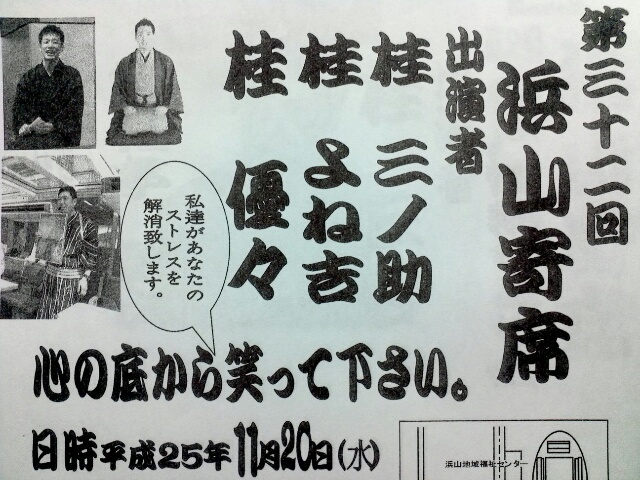 第三十二回
浜山寄席
出演者
桂 三ノ助
桂 よね吉
桂 優々
私達があなたの
ストレスを
解消致します。
心の底から笑って下さい。
日時平成25年11月20日(水)
浜山地域福祉センター